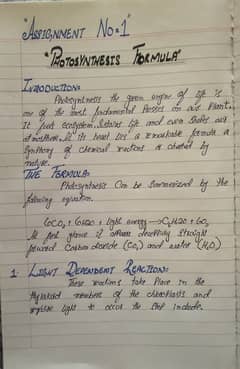 "ASSIGNMENT No:1"
"PHOTOSYNTHESIS FORMULA"
INTRODUCTION:
Photosynthesis the green engine of life is
one of the most fundamental Process on our Planet.
It fuels ecosystem, Sustains life and even Shapes our
atmosphere. At its heart lies a remarkable formula a
Symphony of chemical reactions
nature.
THE FORMULA:
Photosynthesis Can be Summarized by the
following equation.
6CO2 + 6H2O + light energy → C6H12O6 + 6O2
At first glance it appears deceptively straight
forward Carbon dioxide (CO2) and water (H2O)
1. LIGHT DEPENDENT REACTION:
These reactions take Place in the
thylakoid membranes of the chloroplasts and
require light to occur the Step include.